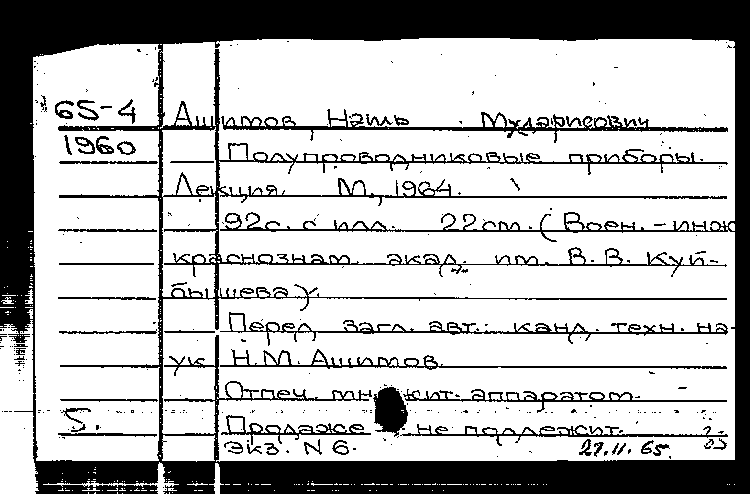 65-4 Ашимов, Наль Мударисович
1960 Полупроводниковые приборы.
Лекция. М., 1964.
92с. с илл. 22см. (Воен.-инж
краснознам. акад. им. В.В. Куй-
бышева).
Перед загл. авт.: канд. техн. на-
ук Н.М. Ашимов.
Отпеч. множит. аппаратом.
5. Продаже не подлежит.
Экз. N 6. 27.11.65.